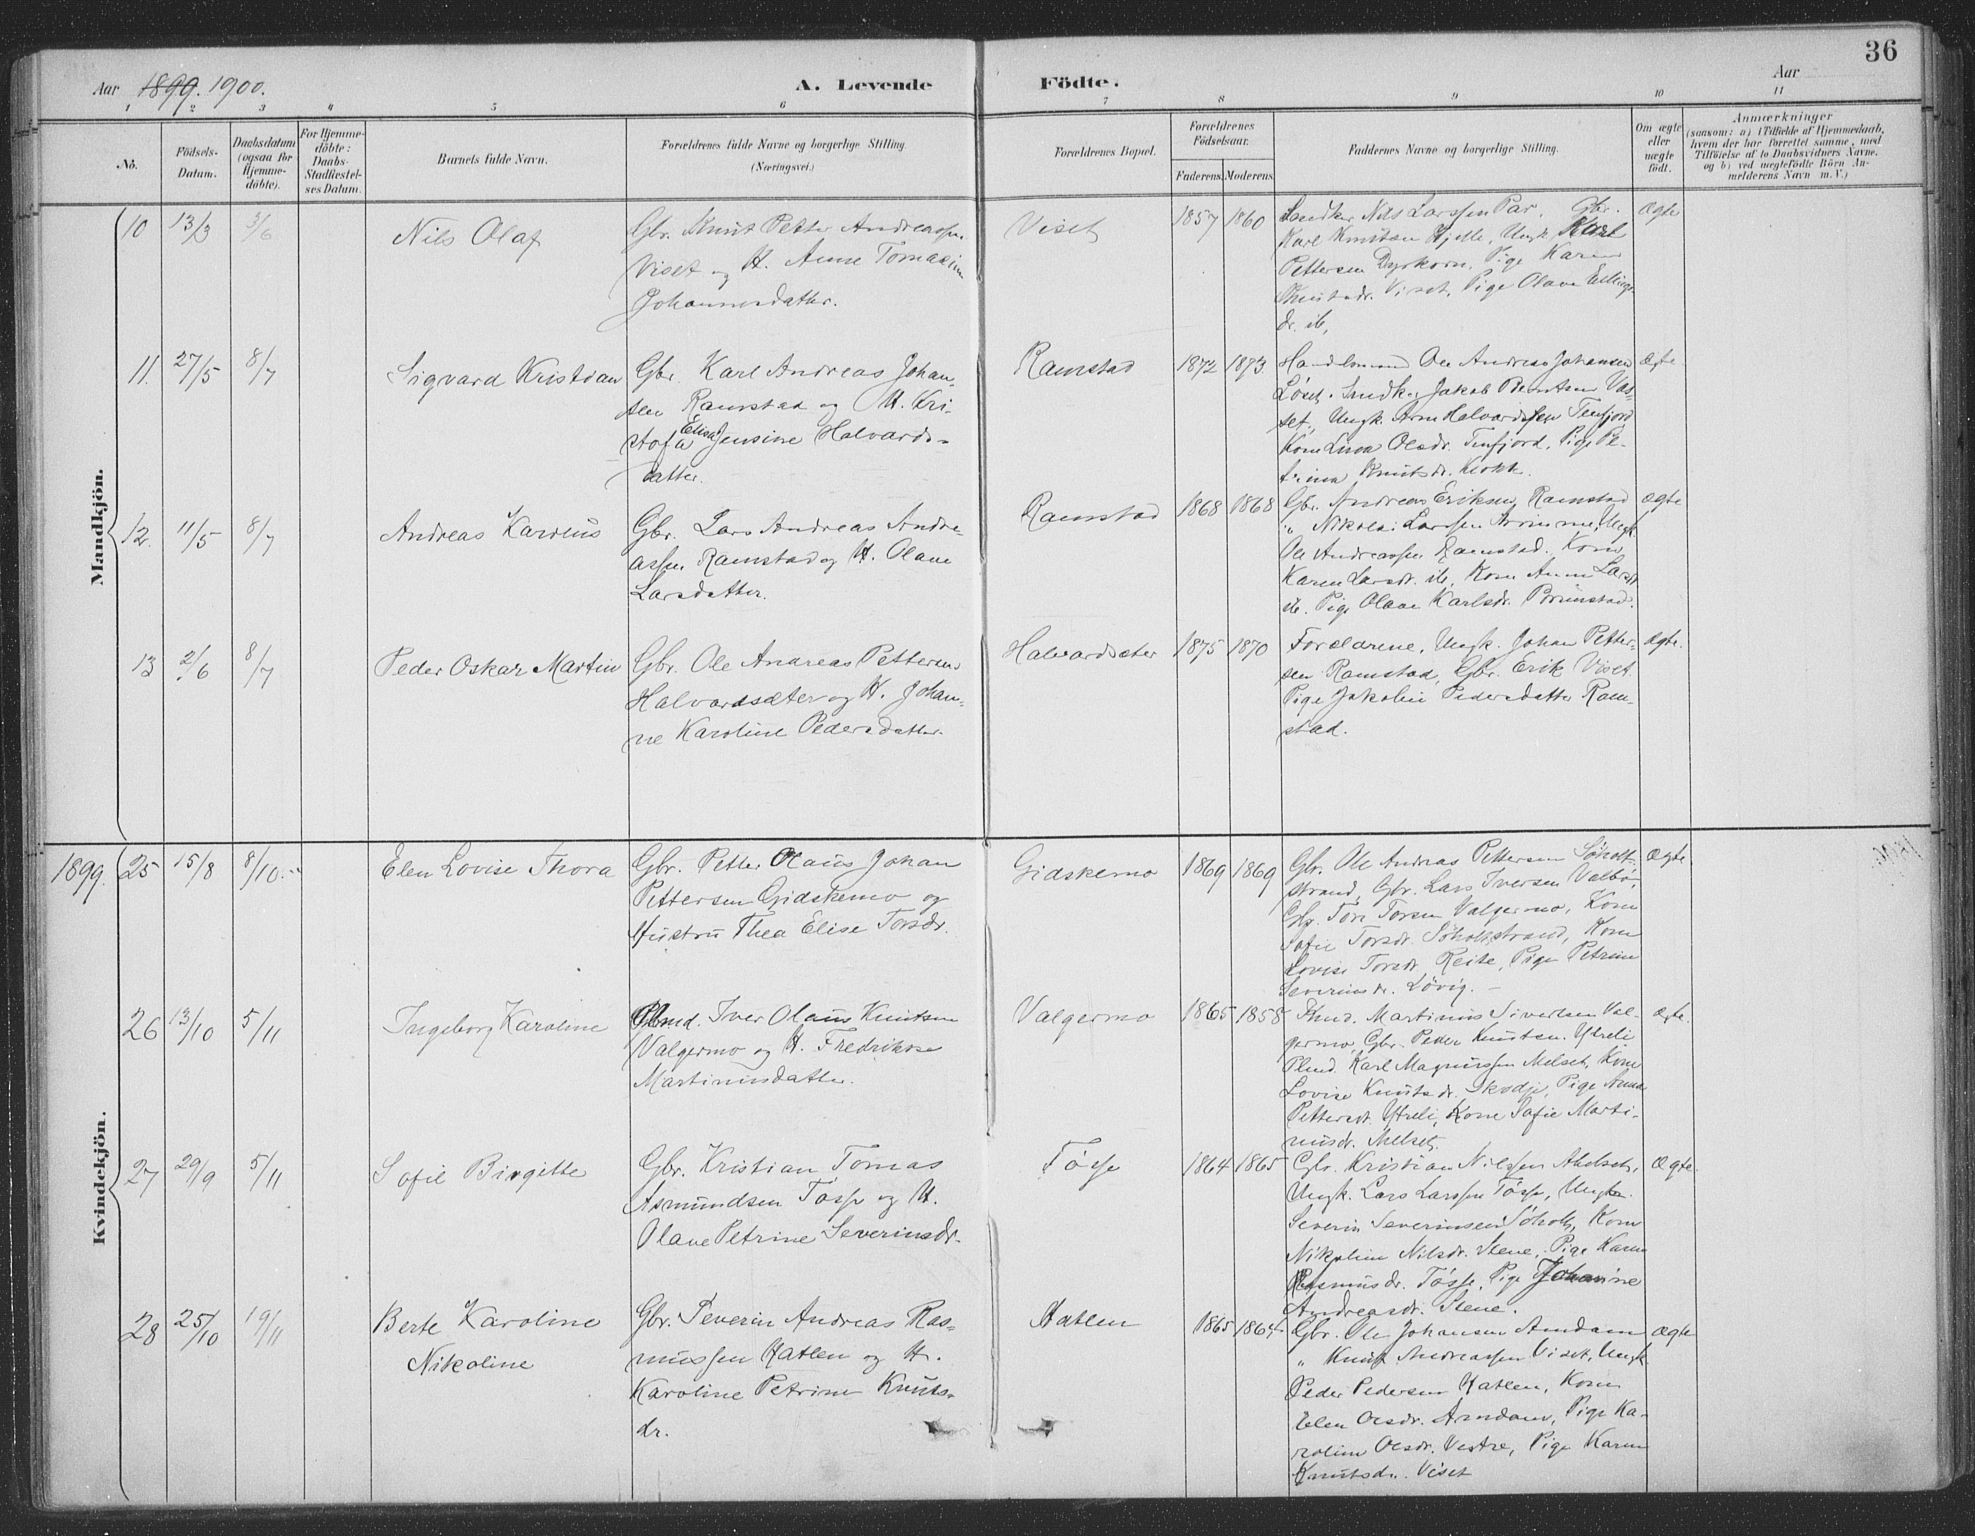 36
Aar 1899. 1900.
A. Levende Födte.
Aar
1 2 3 4 5 6 7 8 9 10 11
No.
Födsels-Datum.
Daabsdatum (ogsaa for Hjemme-döbte).
For Hjemme-döbte: Daabs-Stadfæstel-ses Datum.
Barnets fulde Navn.
Forældrenes fulde Navne og borgerlige Stilling. (Næringsvei.)
Forældrenes Bopæl.
Forældrenes Födselsaar.
Faderens. Moderens.
Faddernes Navne og borgerlige Stilling.
Om ægte eller uægte födt.
Anmærkninger (saasom: a) i Tilfælde af Hjemmedaab, hvem der har forrettet samme, med Tilföielse af to Daabsvidners Navne. og b) ved uægtefödte Börn An-melderens Navn m. V.)
Mandkjön.
10 13/3 3/6
Nils Olaf
Gbr. Knut Petter Andreassen
Viset og H. Anne Tomasine
Johannesdatter.
Viset
1857 1860
Nils Larssen Par, Gbr.
Karl Knutsen Hjelle, Ungk. Karl
Pettersen Dyrkorn, Pige Karen
Knutsdr. Viset, Pige Olave Ellings-
dr. ib,
Ægte
11. 27/5 8/7
Sigvard Kristian
Gbr. Karl Andreas Johan-
sen Ramstad og H. Kri-
stofa Elisa Jensine Halvards-
datter.
Ramstad
1872 1873.
Handelsmand Ole Andreas Johansen
Løset, Jakob Berntsen
Ungk. Arne Halvardssen Tenfjord
Kone Lina Olsdr. Tenfjord, Pige Pe-
trina Knutsdr. Klokk.
Ægte
12. 11/5 8/7
Andreas Kareus
Gbr. Lars Andreas Andre-
assen Ramstad og H. Olave
Larsdatter.
Ramstad
1868 1868
Gbr. Andreas Eriksen Ramstad
" Nikolai Larssen Ungk.
Ole Andreassen Ramstad. Kone
Karen Larsdr. ib, Kone Anne Larsdr
ib. Pige Olave Karlsdr. Brunstad.
Ægte
13 2/6 8/7
Peder Oskar Martin
Gbr. Ole Andreas Pettersen
Halvardsæter og H. Johan-
ne Karoline Pedersdatter.
Halvardsæter
1875 1870
Forældrene, Ungk. Johan Petter-
sen Ramstad, Gbr. Erik Viset
Pige Jakobine Pedersdatter Ram-
stad.
Ægte.
Kvindekjön.
1899. 25 15/8 8/10.
Elen Lovise Thora
Gbr. Petter Olaus Johan
Pettersen Gidskemo og
Hustru Thea Elise Torsdr.
Gidskemo
1869 1869
Gbr. Ole Andreas Pettersen Søholt-
strand, Gbr. Lars Iversen Valbø,
Gbr. Tore Torsen Valgermo, Kone
Sofie Torsdr. Søholtstrand, Kone
Lovise Torsdr. Reite, Pige Petrine
Severinsdr. Løvig. –
Ægte
26 13/10 5/11
Ingeborg Karoline
Plmd. Iver Olaus Knutsen
Valgermo og H. Fredrikke
Martinusdatter.
Valgermo
1865 1858
Martinus Sivertsen Val-
germo, Gbr. Peder Knutsen Ytreli
Plmd. Karl Magnussen Melset, Kone
Lovise Knutsdr. Skodje, Pige Anna
Pettersdr. Ytreli, Kone Sofie Marti-
nusdr. Melset,
Ægte.
27 29/9 5/11
Sofie Birgitte
Gbr. Kristian Tomas
Asmundsen Tøsse og H.
Olave Petrine Severinsdr.
Tøsse
1864 1865
Gbr. Kristian Nilssen
Ungk. Lars Larssen Tøsse, Ungk.
Severin Severinsen Søholt, Kone
Nikoline Nilsdr. Stene, Pige Karen
Rasmusdr. Tøsse, Pige Johanne
Andreasdr. Stene.
Ægte
28 25/10 19/11
Berte Karoline
Nikoline
Gbr. Severin Andreas Ras-
mussen Hatlen og H.
Karoline Petrine Knuts-
dr.
Hatlen
1865 1864
Gbr. Ole Johansen Amdam
" Knut Andreassen Viset, Ungk.
Peder Pedersen Hatlen, Kone
Elen Olsdr. Amdam, Pige Ka-
roline Olsdr. Vestre, Pige Karen
Knutsdr. Viset
Ægte